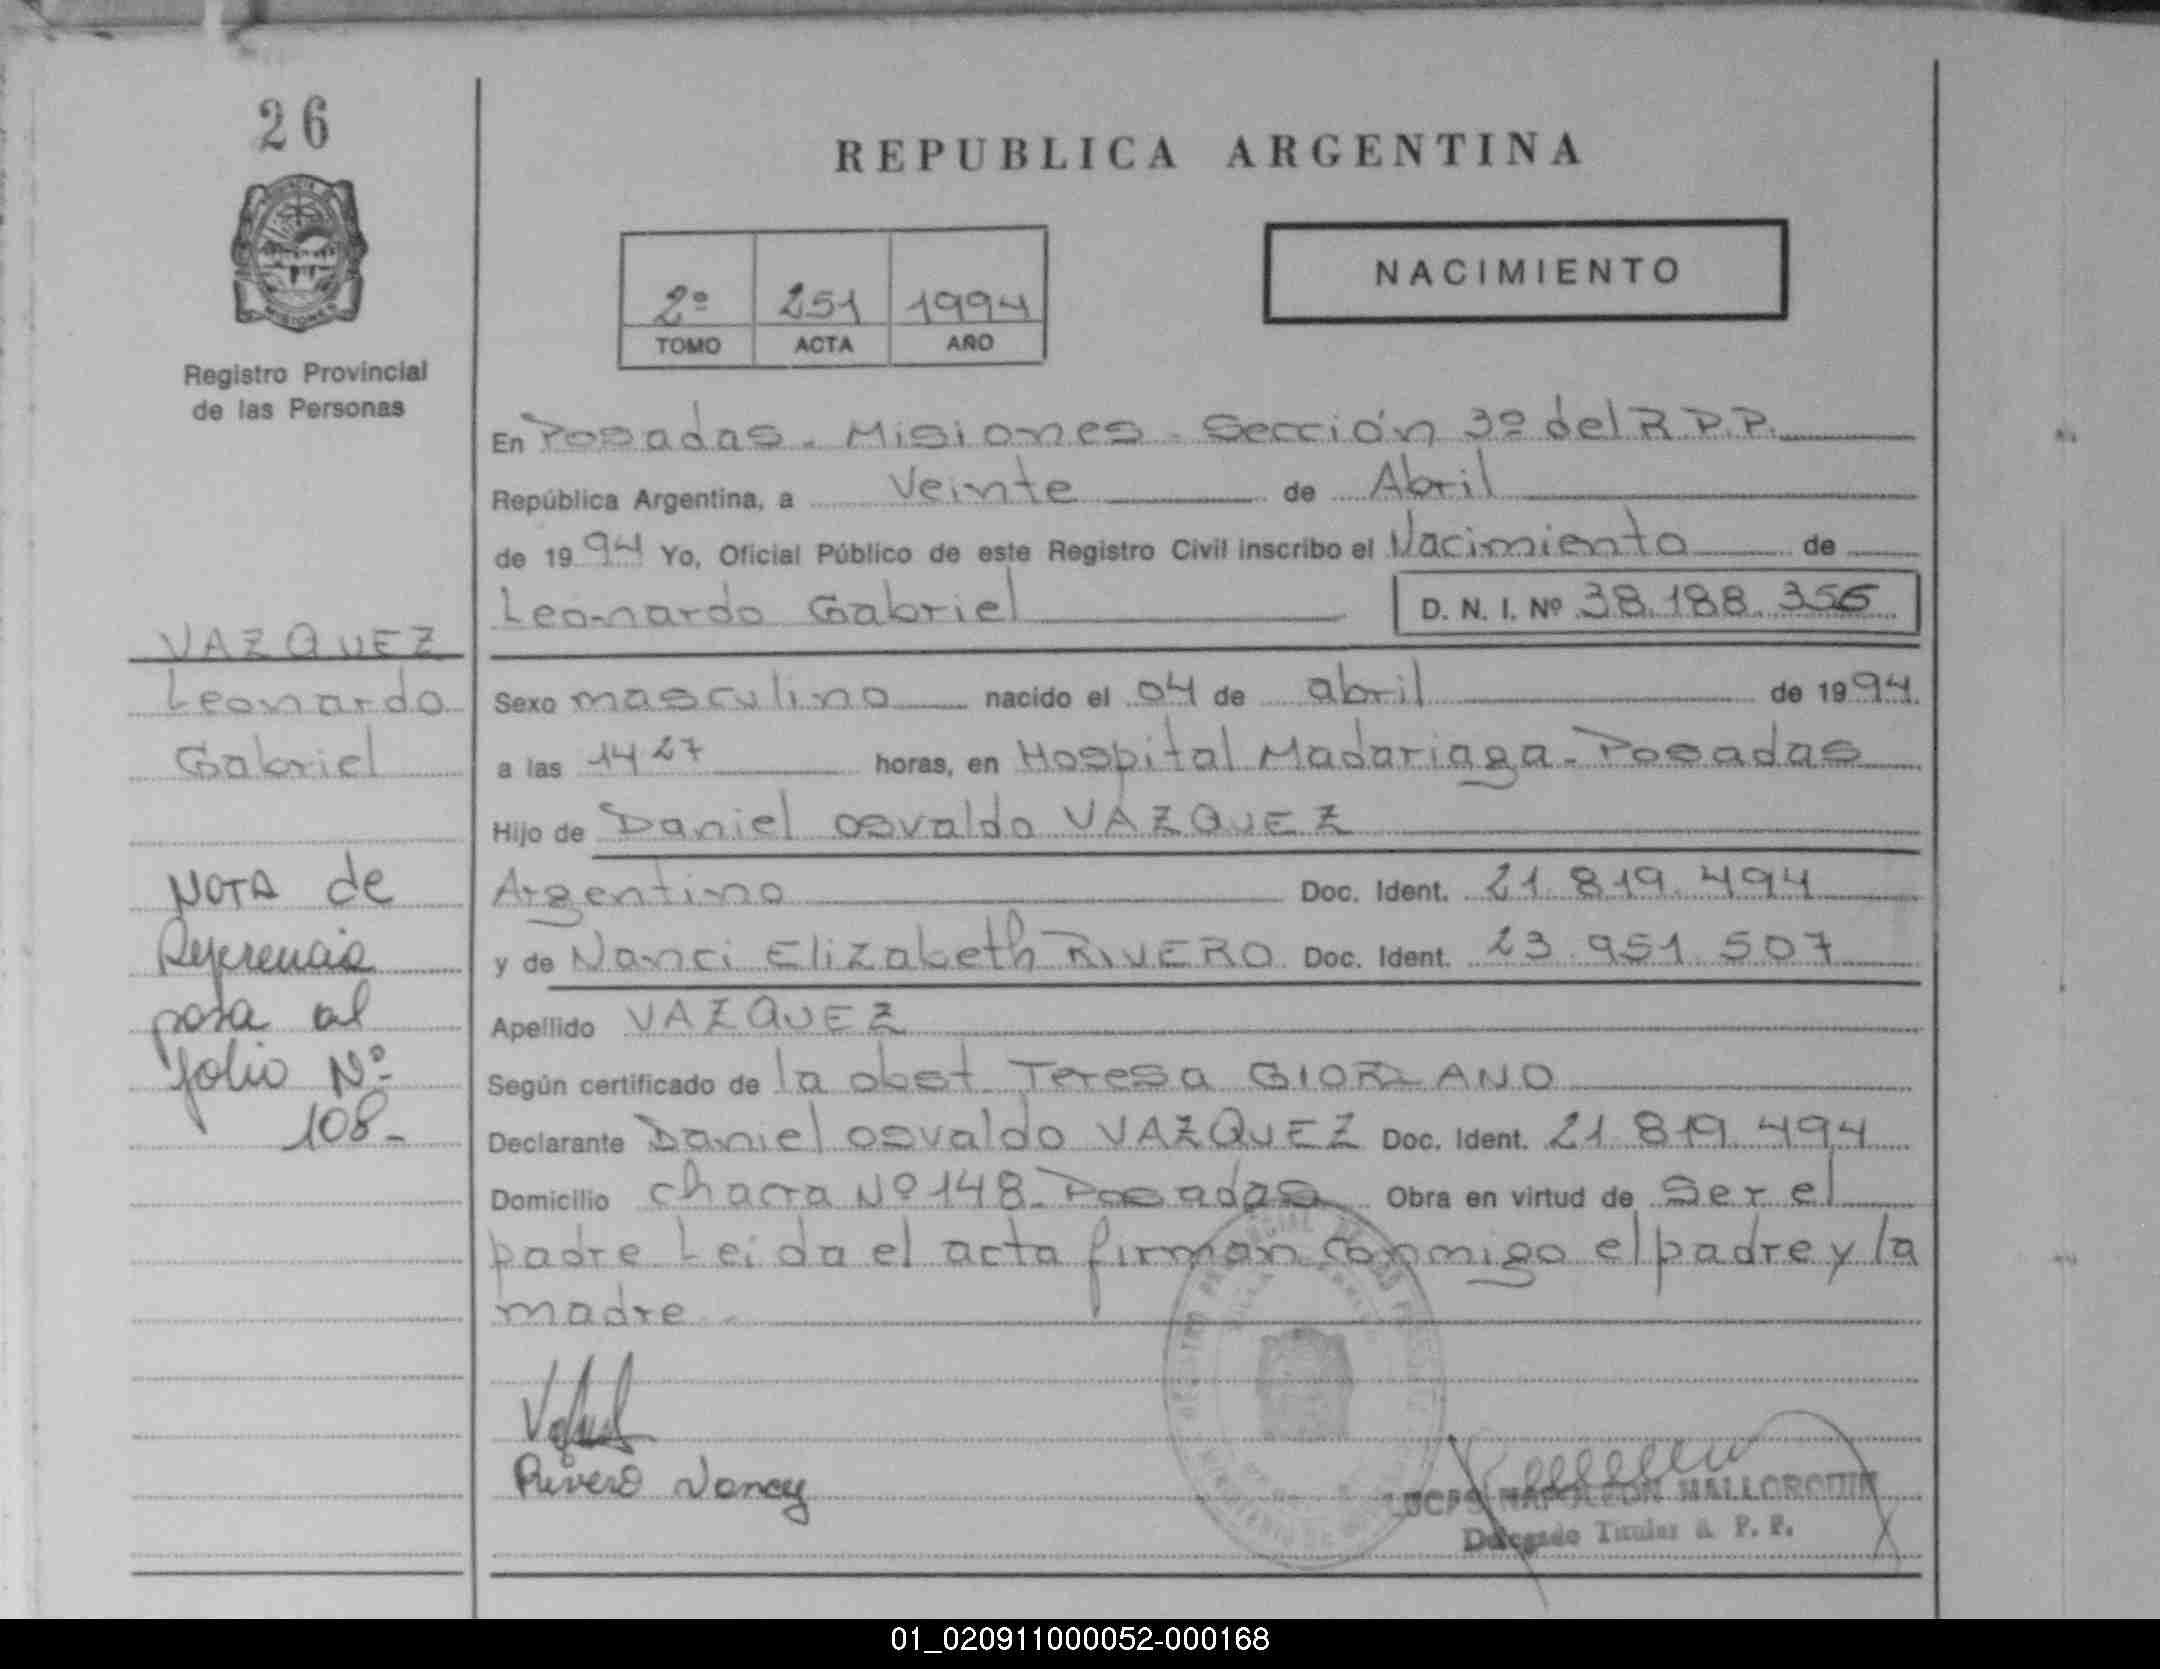 26
REPUBLICA ARGENTINA
NACIMIENTO
2º 251 1994
TOMO ACTA AÑO
MISIONES
Registro Provincial
de las Personas
En Posadas - Misiones - Sección 3º del R.P.P.
República Argentina, a Veinte de Abril
de 1994 Yo, Oficial Público de este Registro Civil inscribo el Nacimiento de
Leonardo Gabriel D. N. I. Nº 38.188.356
VAZQUEZ
Leonardo
Gabriel
Sexo masculino nacido el 04 de abril de 1994.
a las 14 27 horas, en Hospital Madariaga - Posadas
Hijo de Daniel Osvaldo VAZQUEZ
Argentino Doc. Ident. 21.819.494
y de Nanci Elizabeth RIVERO Doc. Ident. 23.951.507
Apellido VAZQUEZ
Según certificado de la obst. Teresa
Declarante Daniel Osvaldo VAZQUEZ Doc. Ident. 21.819.494
Domicilio chacra Nº 148 - Posadas Obra en virtud de Ser el
padre Leida el acta firman conmigo el padre y la
madre -
NOTA de
Referencia
pasa al
folio Nº
108 -
Rivero Nancy
NAPOLEON MALLORQUIN
Delegado Titular R. P. P.
01_020911000052-000168